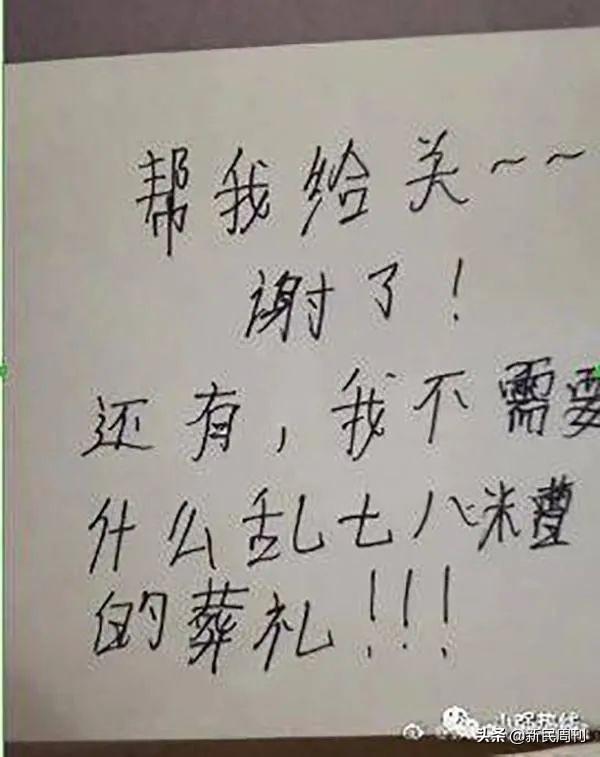 帮我给关~~
谢了!
还有,我不需要
什么乱七八糟
的葬礼!!!
小强热线
头条 @新民周刊